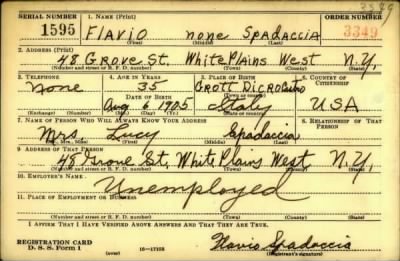 3349
SERIAL NUMBER 1. NAME (Print) ORDER NUMBER
1595 Flavio none Spadaccia 3349
(First) (Middle) (Last)
2. ADDRESS (Print)
48 Grove St. White Plains West N.Y.
(Number and street or R. F. D. number) (Town) (County) (State)
3. TELEPHONE 4. AGE IN YEARS 5. PLACE OF BIRTH 6. COUNTRY OF CITIZENSHIP
None 35
DATE OF BIRTH (Town or county)
Aug 6 1905 Italy USA
(Exchange) (Number) (Mo.) (Day) (Yr.) (State or country)
7. NAME OF PERSON WHO WILL ALWAYS KNOW YOUR ADDRESS 8. RELATIONSHIP OF THAT PERSON
Mrs. Lucy Spadaccia
(Mr., Mrs., Miss) (First) (Middle) (Last)
9. ADDRESS OF THAT PERSON
48 Grove St. White Plains West N.Y.
(Number and street or R. F. D. number) (Town) (County) (State)
10. EMPLOYER'S NAME
Unemployed
11. PLACE OF EMPLOYMENT OR BUSINESS
(Number and street or R. F. D. number) (Town) (County) (State)
I AFFIRM THAT I HAVE VERIFIED ABOVE ANSWERS AND THAT THEY ARE TRUE.
REGISTRATION CARD
D. S. S. Form 1 16-17105 Flavio Spadaccia
(over) (Registrant's signature)